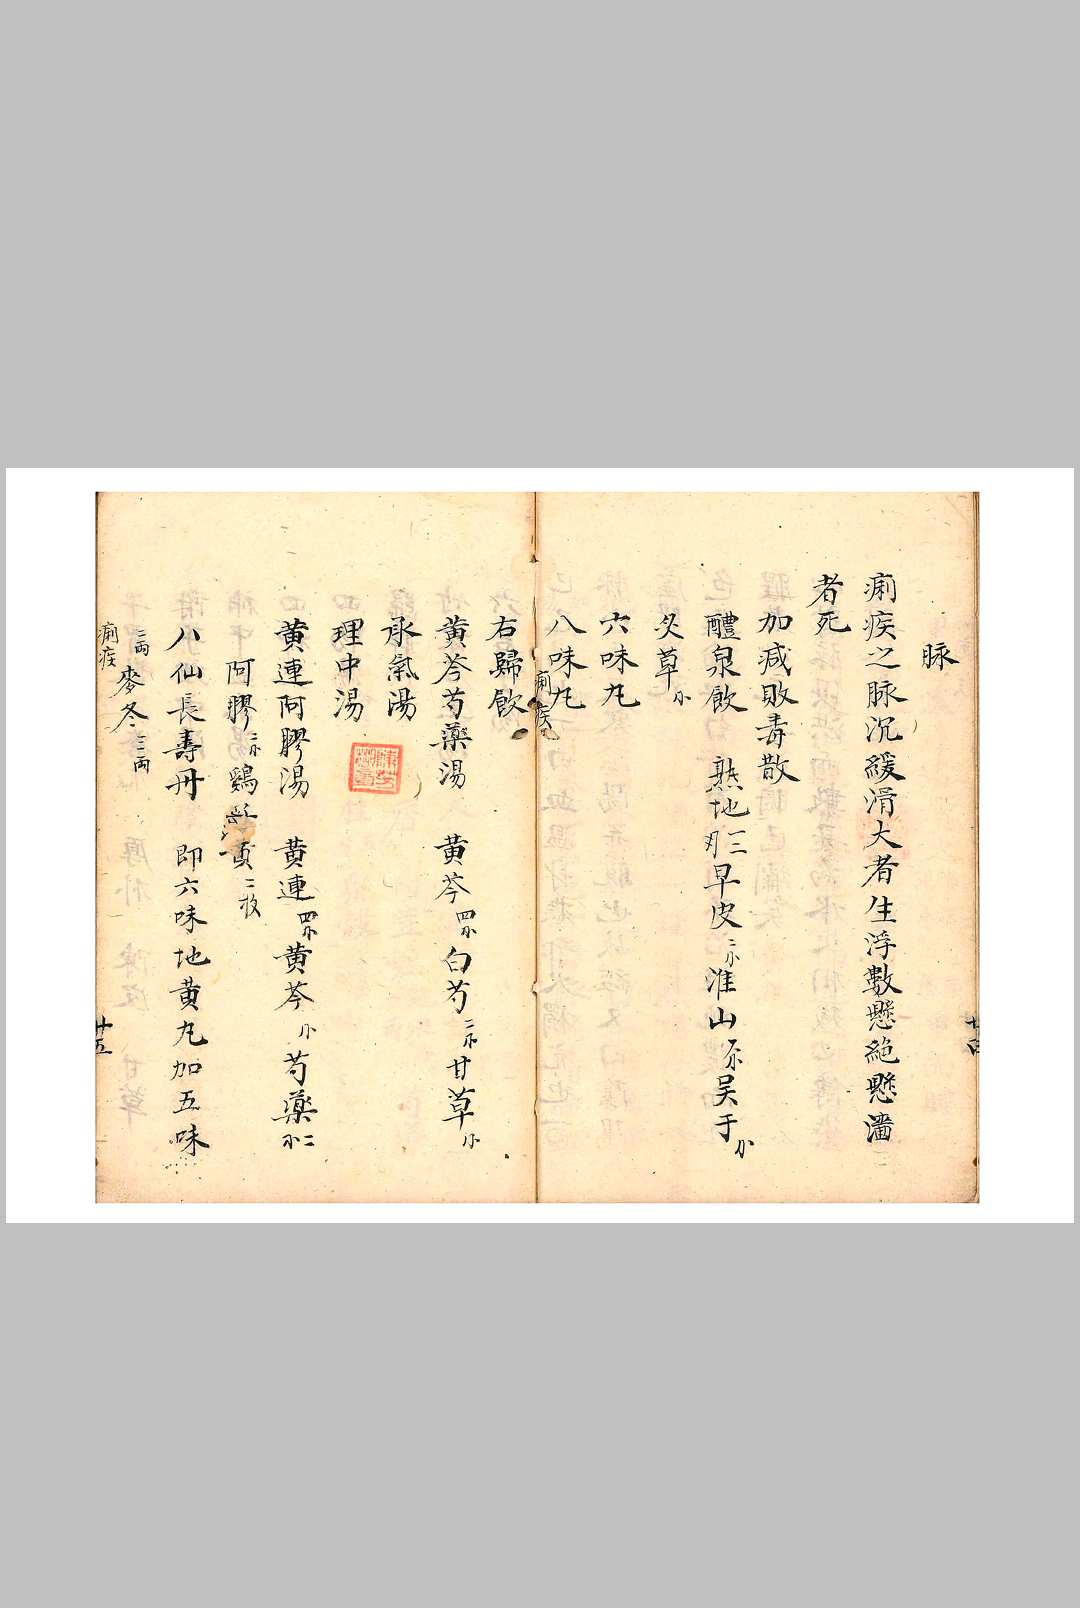 脉
痢疾之脉沉緩滑大者生浮數懸絶懸濇
者死
加减敗毒散
醴泉飲 熟地三刃早皮二小淮山小吴于小
炙草小
六味丸
八味丸
痢疾
右歸飲
黄芩芍藥湯 黄芩四小白芍二小甘草小
承氣湯
理中湯
黄連阿膠湯 黄連四小黄芩小芍藥二小
阿膠二小鷄黄二枚
八仙長壽丹 即六味地黄丸加五味
二両麥冬三両
痢疾
廿四
廿五